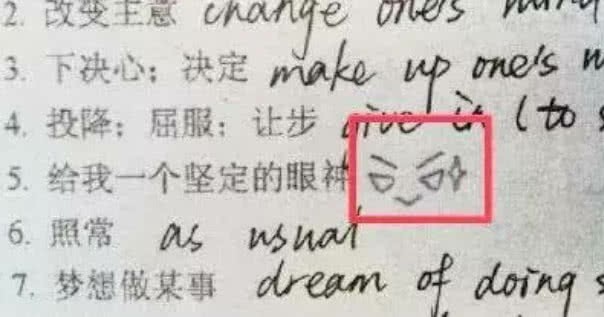 2. 改变主意 change one's mind
3. 下决心；决定 make up one's
4. 投降；屈服；让步 give in (to
5. 给我一个坚定的眼神
6. 照常 as usual
7. 梦想做某事 dream of doing